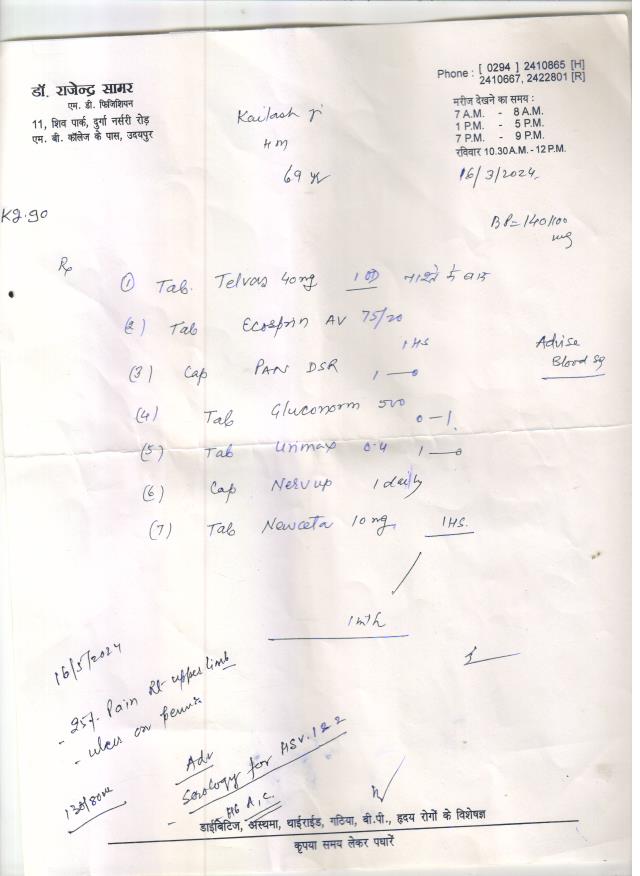 डॉ. राजेन्द्र सामर
एम. डी. फिजिशियन
11, शिव पार्क, दुर्गा नर्सरी रोड़
एम. बी. कॉलेज के पास, उदयपुर
Phone : [ 0294 ] 2410865 [H]
2410667, 2422801 [R]
मरीज देखने का समय :
7 A.M. - 8 A.M.
1 P.M. - 5 P.M.
7 P.M. - 9 P.M.
रविवार 10.30 A.M. - 12 P.M.
Kailash ji
69 yr
16/3/2024
BP = 140/100
mg
Rx
(1) Tab. Telvas 40mg 1 OD नाश्ते के बाद
(2) Tab Ecosprin AV 75/20
1 HS
(3) Cap PAN DSR 1—0
(4) Tab Gluconorm 500
0—1
(5) Tab Urimax 0.4 1—0
(6) Cap Nervup 1 daily
(7) Tab Newceta 10 mg 1HS.
Advise
Blood sg
1 mth
16/5/2024
- Pain Rt upper limb
- ulcer on penis
130/80
Adv
- Serology for HSV. 1 & 2
Hb A,C.
डाईबिटिज, अस्थमा, थाईराईड, गठिया, बी.पी., हृदय रोगों के विशेषज्ञ
कृपया समय लेकर पधारें